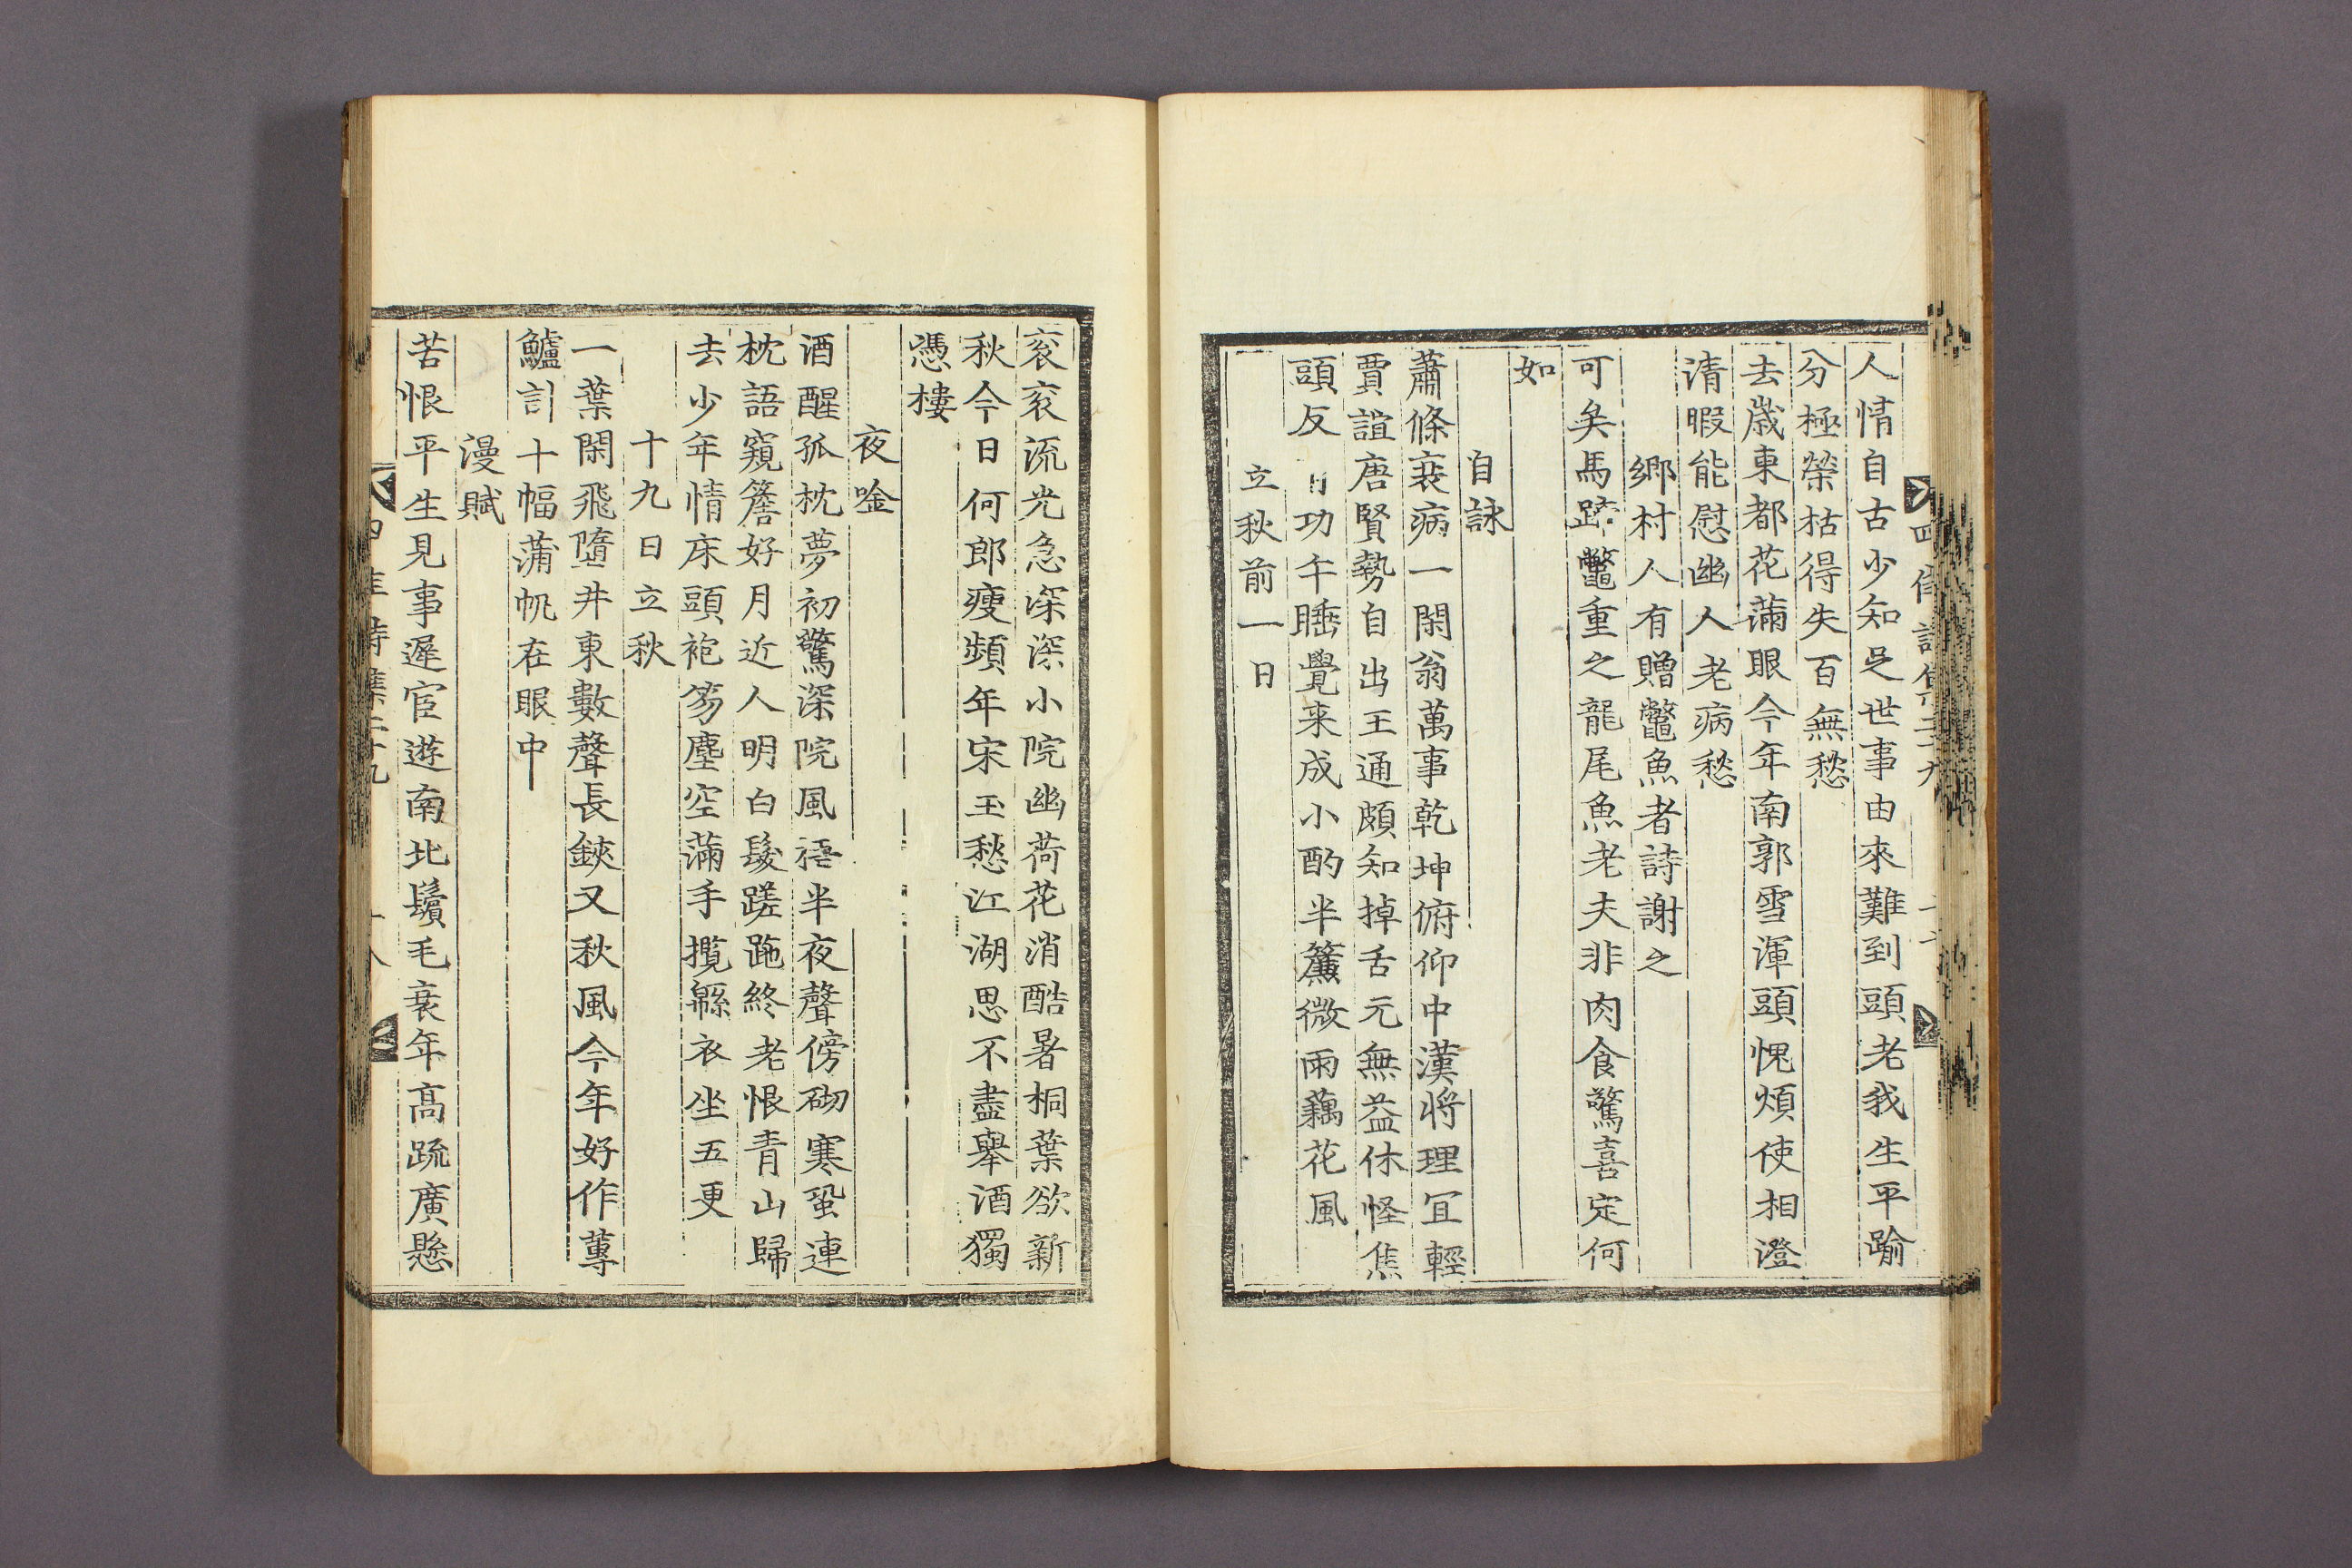 人情自古少知足世事由來難到頭老我生平踰
分極榮枯得失百無愁
去歲東都花滿眼今年南郭雪渾頭愧煩使相澄
清暇能慰幽人老病愁
鄉村人有贈鼈魚者詩謝之
可矣馬蹄鼈重之龍尾魚老夫非肉食驚喜定何
如
自詠
蕭條衰病一閑翁萬事乾坤俯仰中漢將理冝輕
賈誼唐賢勢自出王通頗知掉舌元無益休怪焦
頭反有功午睡覺来成小酌半簾微雨藕花風
立秋前一日
衮衮流光急深深小院幽荷花消酷暑桐葉欲新
秋今日何郎瘦頻年宋玉愁江湖思不盡舉酒獨
憑樓
夜唫
酒醒孤枕夢初驚深院風梧半夜聲傍砌寒蛩連
枕語窺簷好月近人明白髮蹉跎終老恨青山歸
去少年情床頭袍笏塵空滿手攬緜衣坐五更
十九日立秋
一葉閑飛墮井東數聲長鋏又秋風今年好作蓴
鱸計十幅蒲帆在眼中
漫賦
苦恨平生見事遲宦遊南北鬢毛衰年高疏廣懸
四佳詩集二十九 十八